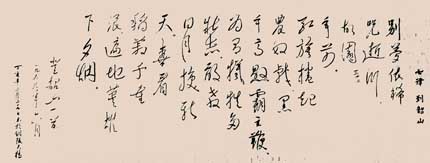 七律 到韶山
别梦依稀
咒逝川
故園三十
年前
红旗捲起
農奴戟黑
手高懸霸主鞭
为有犧牲多
壮志敢教
日月换新
天喜看
稻菽千重
浪遍地英雄
下夕烟
登韶山一首
一九五九年六月